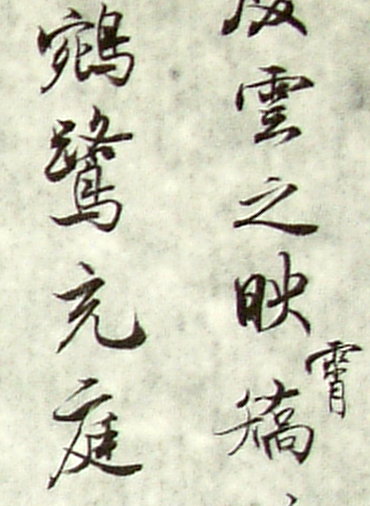 雲之映霄
鵷鷺充庭